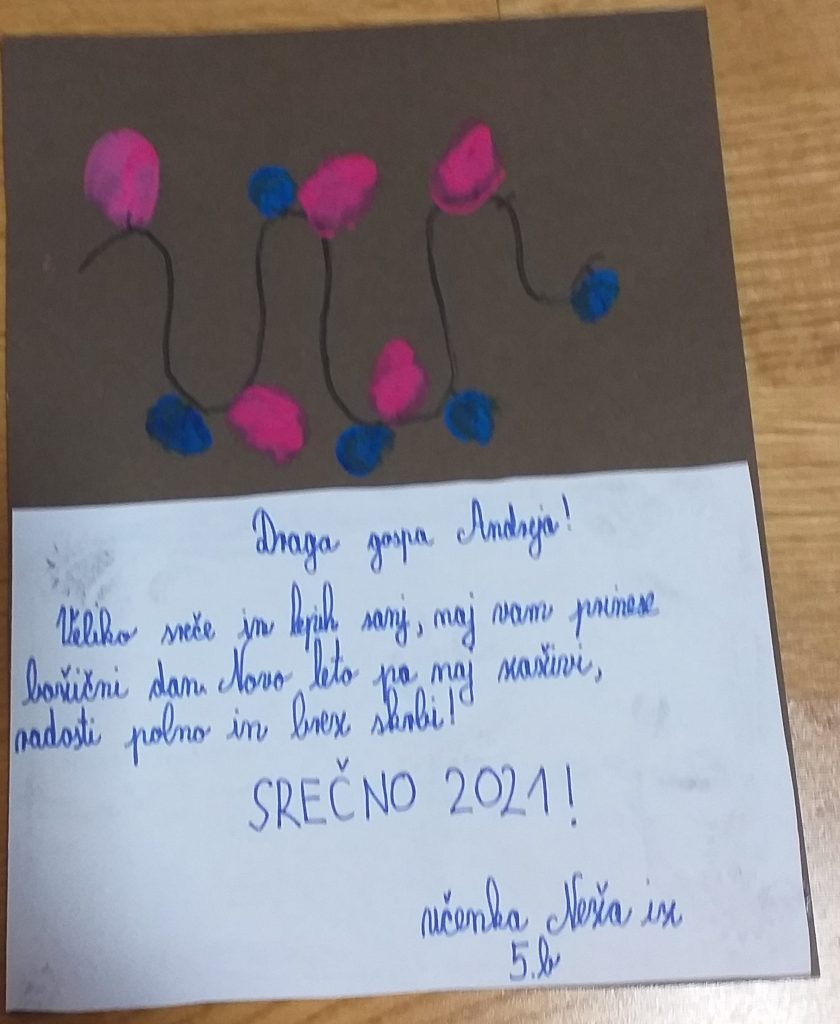 Draga gospa Andreja!
Veliko sreče in lepih sanj, naj vam prinese
božični dan. Novo leto pa naj zaživi,
radosti polno in brez skrbi!
SREČNO 2021!
učenka Neža iz
5.b